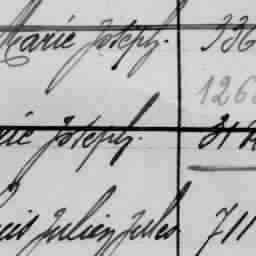 Marie Joseph. 336
126
rie Joseph. 31
uis Julien Jules 711